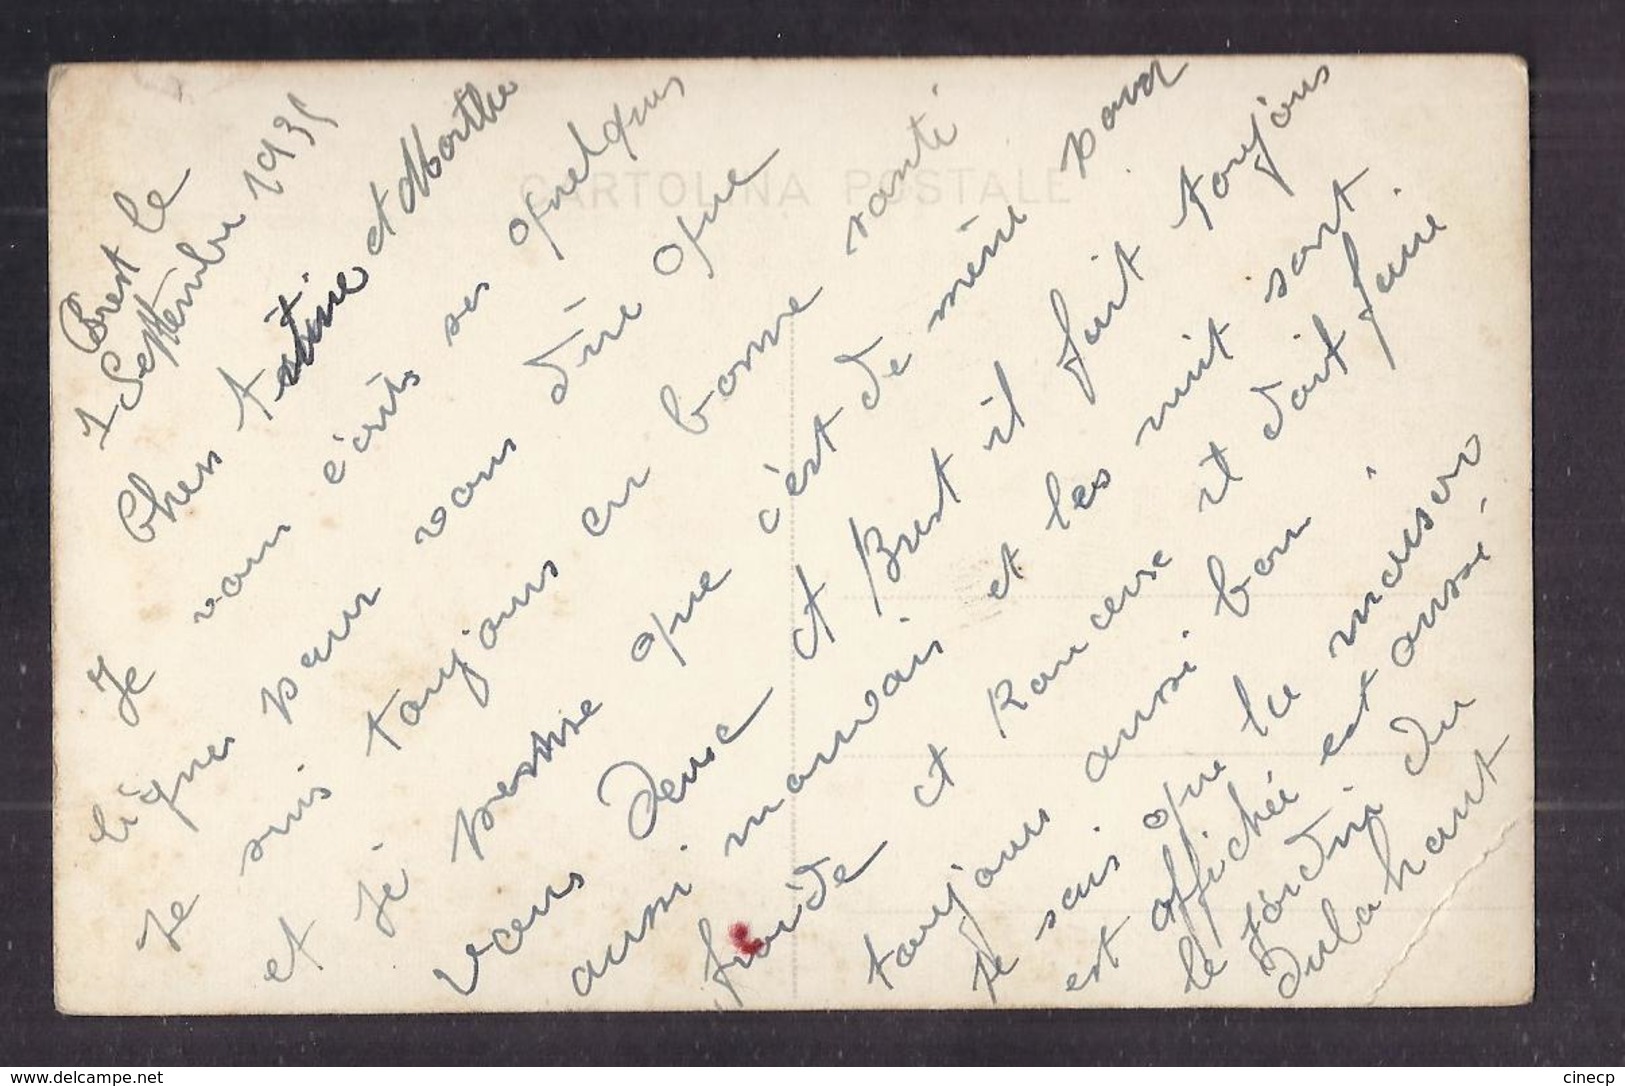 Brest le
1 Septembre 1935
Chers tatine et Marthe
Je vous écrits ses quelques
lignes pour vous dire que
Je suis toujours en bonne santé
et Je pensse que c'est de même pour
vous deuse et Brest il fait toujous
aussi mauvais et les nuit sont
froide et Rancene it doit faire
toujours aussi bon
Je sais que la maison
est affichée est aussi
le Jardin du
CARTOLINA POSTALE
www.delcampe.net
cinecp